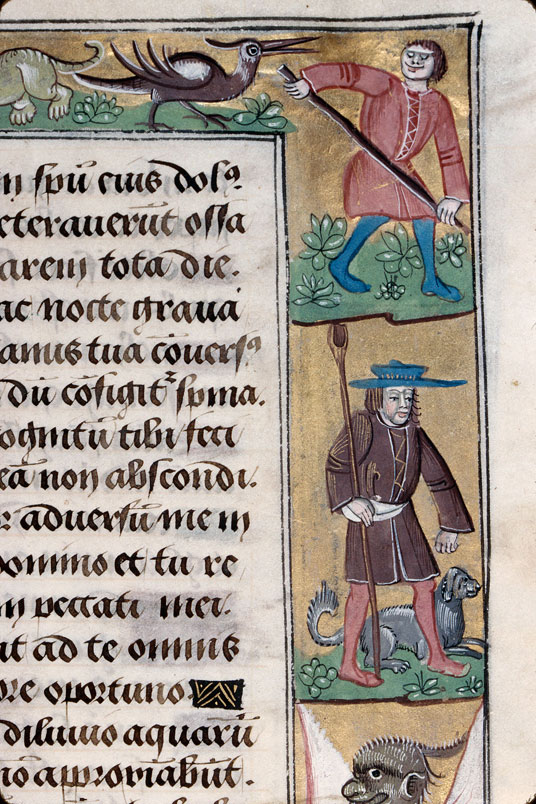 in spū eius dolꝰ.
eteraverūt ossa
arem tota die.
ac nocte gravā
anus tua cōversꝰ
dū cōfigit᷑ spina.
ognitū tibi feci
eā non abscondi.
r adversū me in
domino et tu re
m peccati mei.
it ad te omnis
ore oportuno
diluvio aquarū
nō approxiabūt.